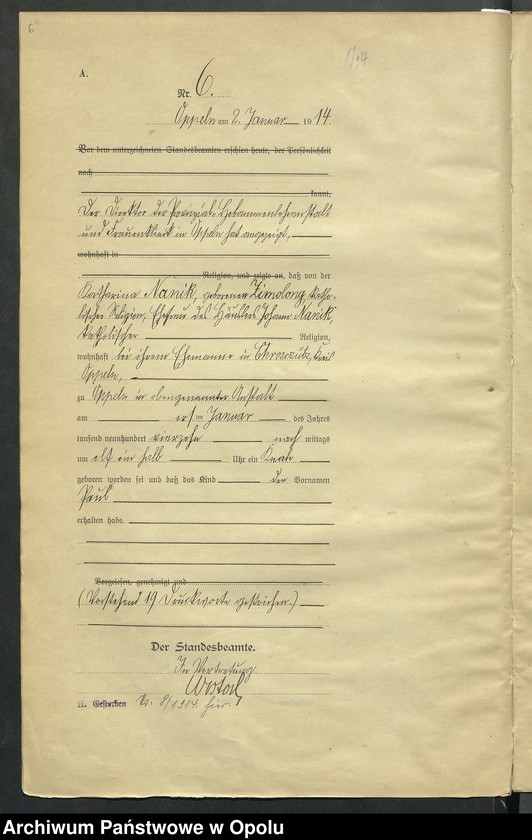 6
1914
A.
Nr. 6.
Oppeln am 2. Januar 1914
Vor dem unterzeichneten Standesbeamten erschien heute, der Persönlichkeit
nach
kannt,
Der Direktor der Provinzial Hebammenlehranstalt
und Frauenklinik in Oppeln hat angezeigt,
wohnhaft in
Religion, und zeigte an, daß von der
Katharina Nanik, geborenen Zimolong, katho-
lischer Religion, Ehefrau des Häuslers Johann Nanik,
katholischer Religion,
wohnhaft bei ihrem Ehemanne in Chrosczütz, Kreis
Oppeln,
zu Oppeln in obengenannter Anstalt
am ersten Januar des Jahres
tausend neunhundert vierzehn nachmittags
um elf ein halb Uhr ein Knabe
geboren worden sei und daß das Kind den Vornamen
Paul
erhalten habe.
Vorgelesen, genehmigt und
(Vorstehend 19 Druckworte gestrichen.)
Der Standesbeamte.
In Vertretung
Gestorben Nr. 8/1914. hier.
Archiwum Państwowe w Opolu